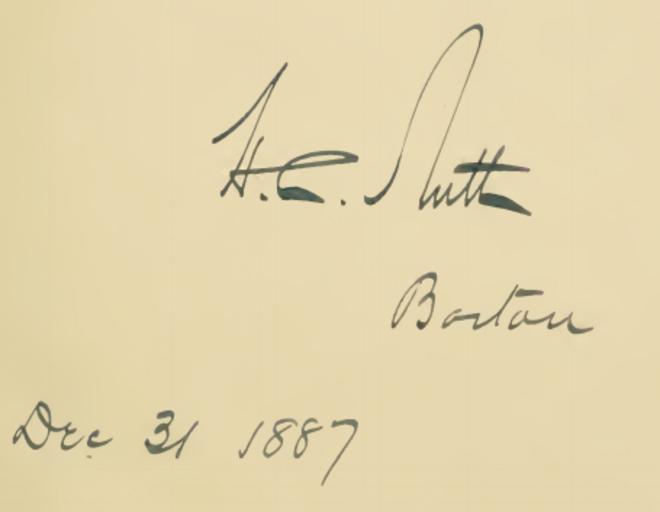 H. C. Nutt
Boston
Dec 31 1887